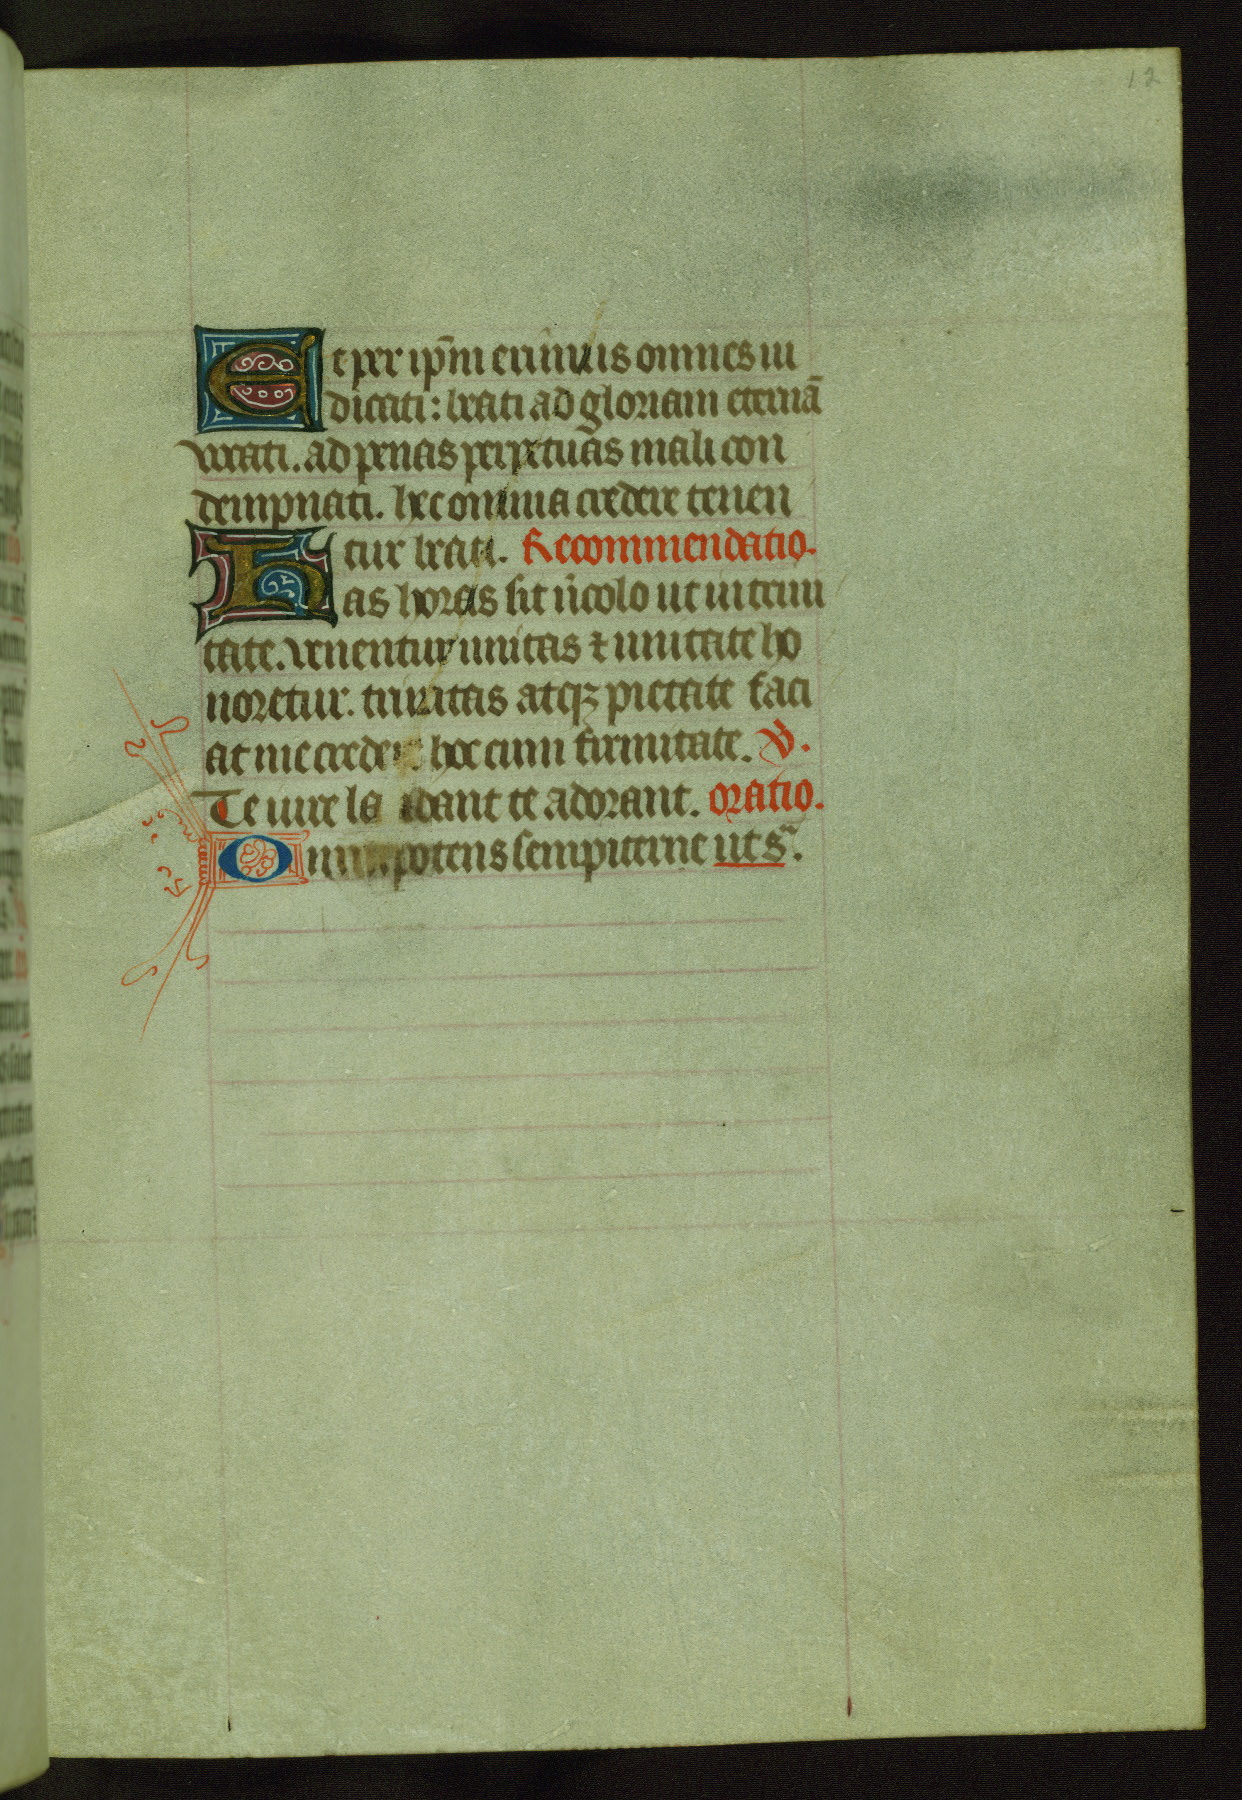 12
Et per ip̄m erim̄us omnes iu
dicati: beati ad gloriam eternā
vocati. ad penas perpetuas mali con
dempnati. hec omnia credere tenen
tur beati. Recommendatio.
Has horas sit ut in trini
tate. venentur unitas ⁊ unitate ho
noretur. trinitas atqꝫ pietate faci
at me credere hoc cum firmitate. V̸.
Te iure laudant te adorant. oratio.
Omnipotens sempiterne ut sᵃ.